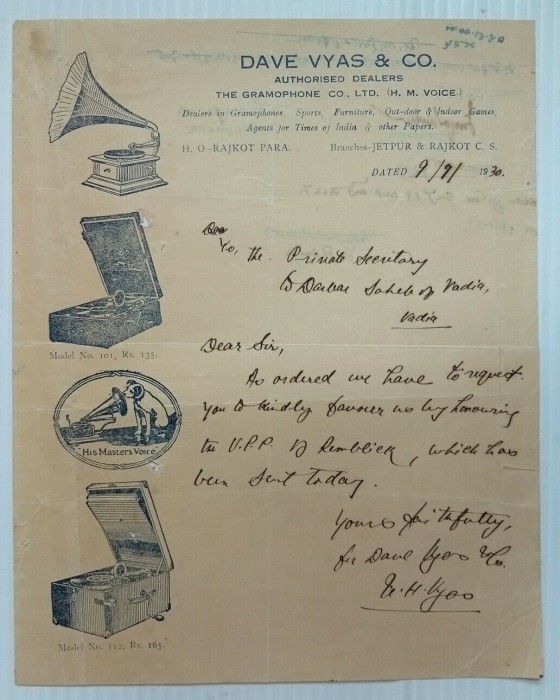 DAVE VYAS & CO.
AUTHORISED DEALERS
THE GRAMOPHONE CO., LTD. (H. M. VOICE)
Dealers in Gramophones, Sports, Furniture, Out-door & Indoor Games,
Agents for Times of India & other Papers.
H. O-RAJKOT PARA. Branches-JETPUR & RAJKOT C. S.
DATED 9/9/1930.
To, the Private Secretary
to Darbar Saheb of Vadia,
Vadia
Model No. 101, Rs. 135.
Dear Sir,
As ordered we have to request
you to kindly favour us by honouring
the V.P.P. of , which has
been sent today.
"His Masters Voice"
Yours faithfully,
for Dave Vyas & Co.
H. Vyas
Model No. 112, Rs. 165.